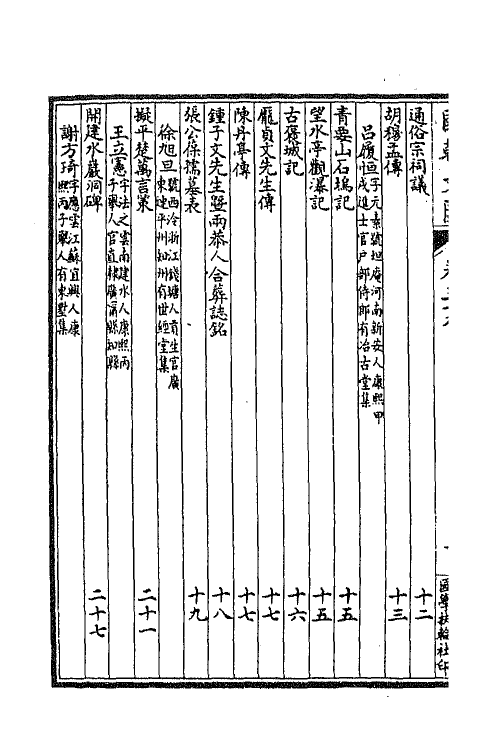 通俗宗祠議 十二
胡穆孟傳 十三
呂履恒字元素號坦庵河南新安人康熙甲戌進士官戶部侍郎有冶古堂集
青要山石塢記 十五
望水亭觀瀑記 十五
古褒城記 十六
龐貞文先生傳 十七
陳丹亭傳 十七
鍾子文先生暨兩恭人合葬誌銘 十八
張公保孺墓表 十九
徐旭旦號西泠浙江錢塘人貢生官廣東連平州知州有世經堂集
擬平楚萬言策 二十一
王立憲字法之雲南建水人康熙丙子舉人官直隸廣宗縣知縣
開建水巖洞碑 二十七
謝方琦字應雲江蘇宜興人康熙丙子舉人有東墅集
國學扶輪社印